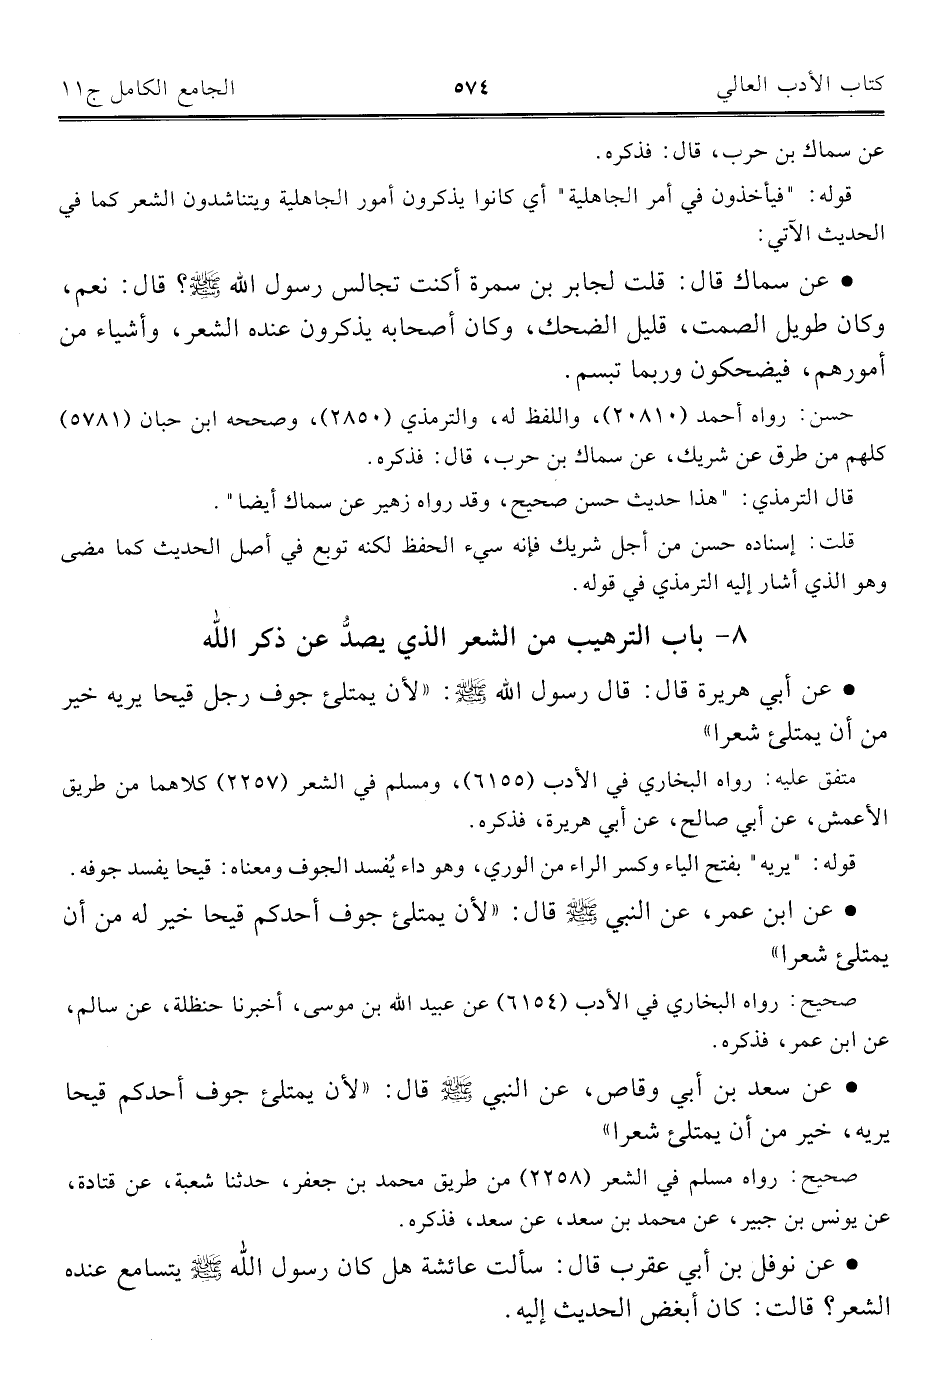 كتاب الأدب العالي ٥٧٤ الجامع الكامل ج١١
عن سماك بن حرب، قال: فذكره.
قوله: "فيأخذون في أمر الجاهلية" أي كانوا يذكرون أمور الجاهلية ويتناشدون الشعر كما في
الحديث الآتي:
• عن سماك قال: قلت لجابر بن سمرة أكنت تجالس رسول الله ﷺ؟ قال: نعم،
وكان طويل الصمت، قليل الضحك، وكان أصحابه يذكرون عنده الشعر، وأشياء من
أمورهم، فيضحكون وربما تبسم.
حسن: رواه أحمد (٢٠٨١٠)، واللفظ له، والترمذي (٢٨٥٠)، وصححه ابن حبان (٥٧٨١)
كلهم من طرق عن شريك، عن سماك بن حرب، قال: فذكره.
قال الترمذي: "هذا حديث حسن صحيح، وقد رواه زهير عن سماك أيضا".
قلت: إسناده حسن من أجل شريك فإنه سيء الحفظ لكنه توبع في أصل الحديث كما مضى
وهو الذي أشار إليه الترمذي في قوله.
٨- باب الترهيب من الشعر الذي يصدُّ عن ذكر الله
• عن أبي هريرة قال: قال رسول الله ﷺ: «لأن يمتلئ جوف رجل قيحا يريه خير
من أن يمتلئ شعرا»
متفق عليه: رواه البخاري في الأدب (٦١٥٥)، ومسلم في الشعر (٢٢٥٧) كلاهما من طريق
الأعمش، عن أبي صالح، عن أبي هريرة، فذكره.
قوله: "يريه" بفتح الياء وكسر الراء من الوري، وهو داء يُفسد الجوف ومعناه: قيحا يفسد جوفه.
• عن ابن عمر، عن النبي ﷺ قال: «لأن يمتلئ جوف أحدكم قيحا خير له من أن
يمتلئ شعرا»
صحيح: رواه البخاري في الأدب (٦١٥٤) عن عبيد الله بن موسى، أخبرنا حنظلة، عن سالم،
عن ابن عمر، فذكره.
• عن سعد بن أبي وقاص، عن النبي ﷺ قال: «لأن يمتلئ جوف أحدكم قيحا
يريه، خير من أن يمتلئ شعرا»
صحيح: رواه مسلم في الشعر (٢٢٥٨) من طريق محمد بن جعفر، حدثنا شعبة، عن قتادة،
عن يونس بن جبير، عن محمد بن سعد، عن سعد، فذكره.
• عن نوفل بن أبي عقرب قال: سألت عائشة هل كان رسول الله ﷺ يتسامع عنده
الشعر؟ قالت: كان أبغض الحديث إليه.